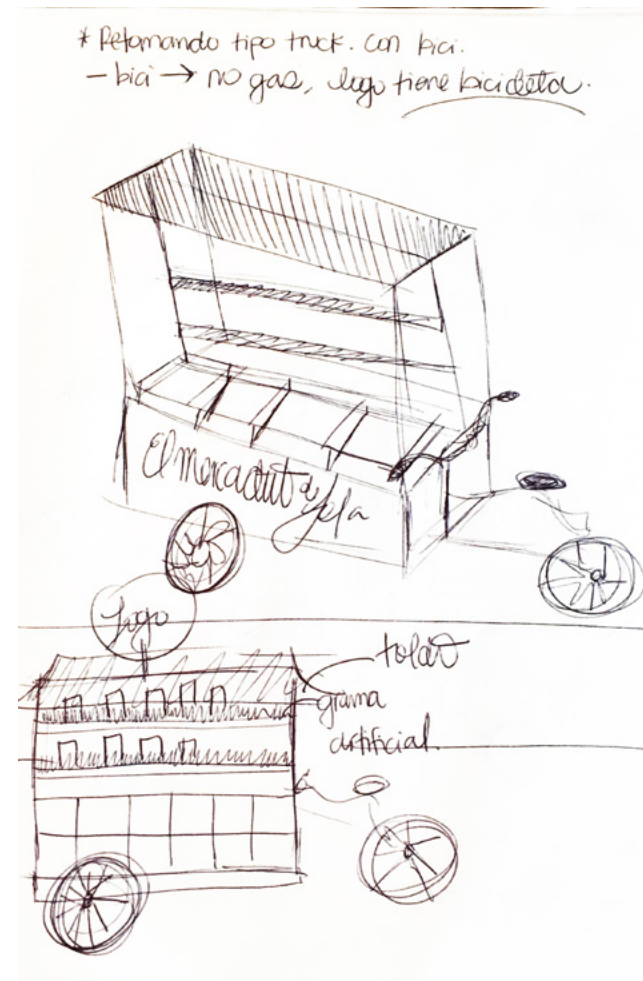 * Retomando tipo truck. con bici.
- bici → no gas, logo tiene bicicleta.
El mercadito de
Logo
toldo
grama
artificial.